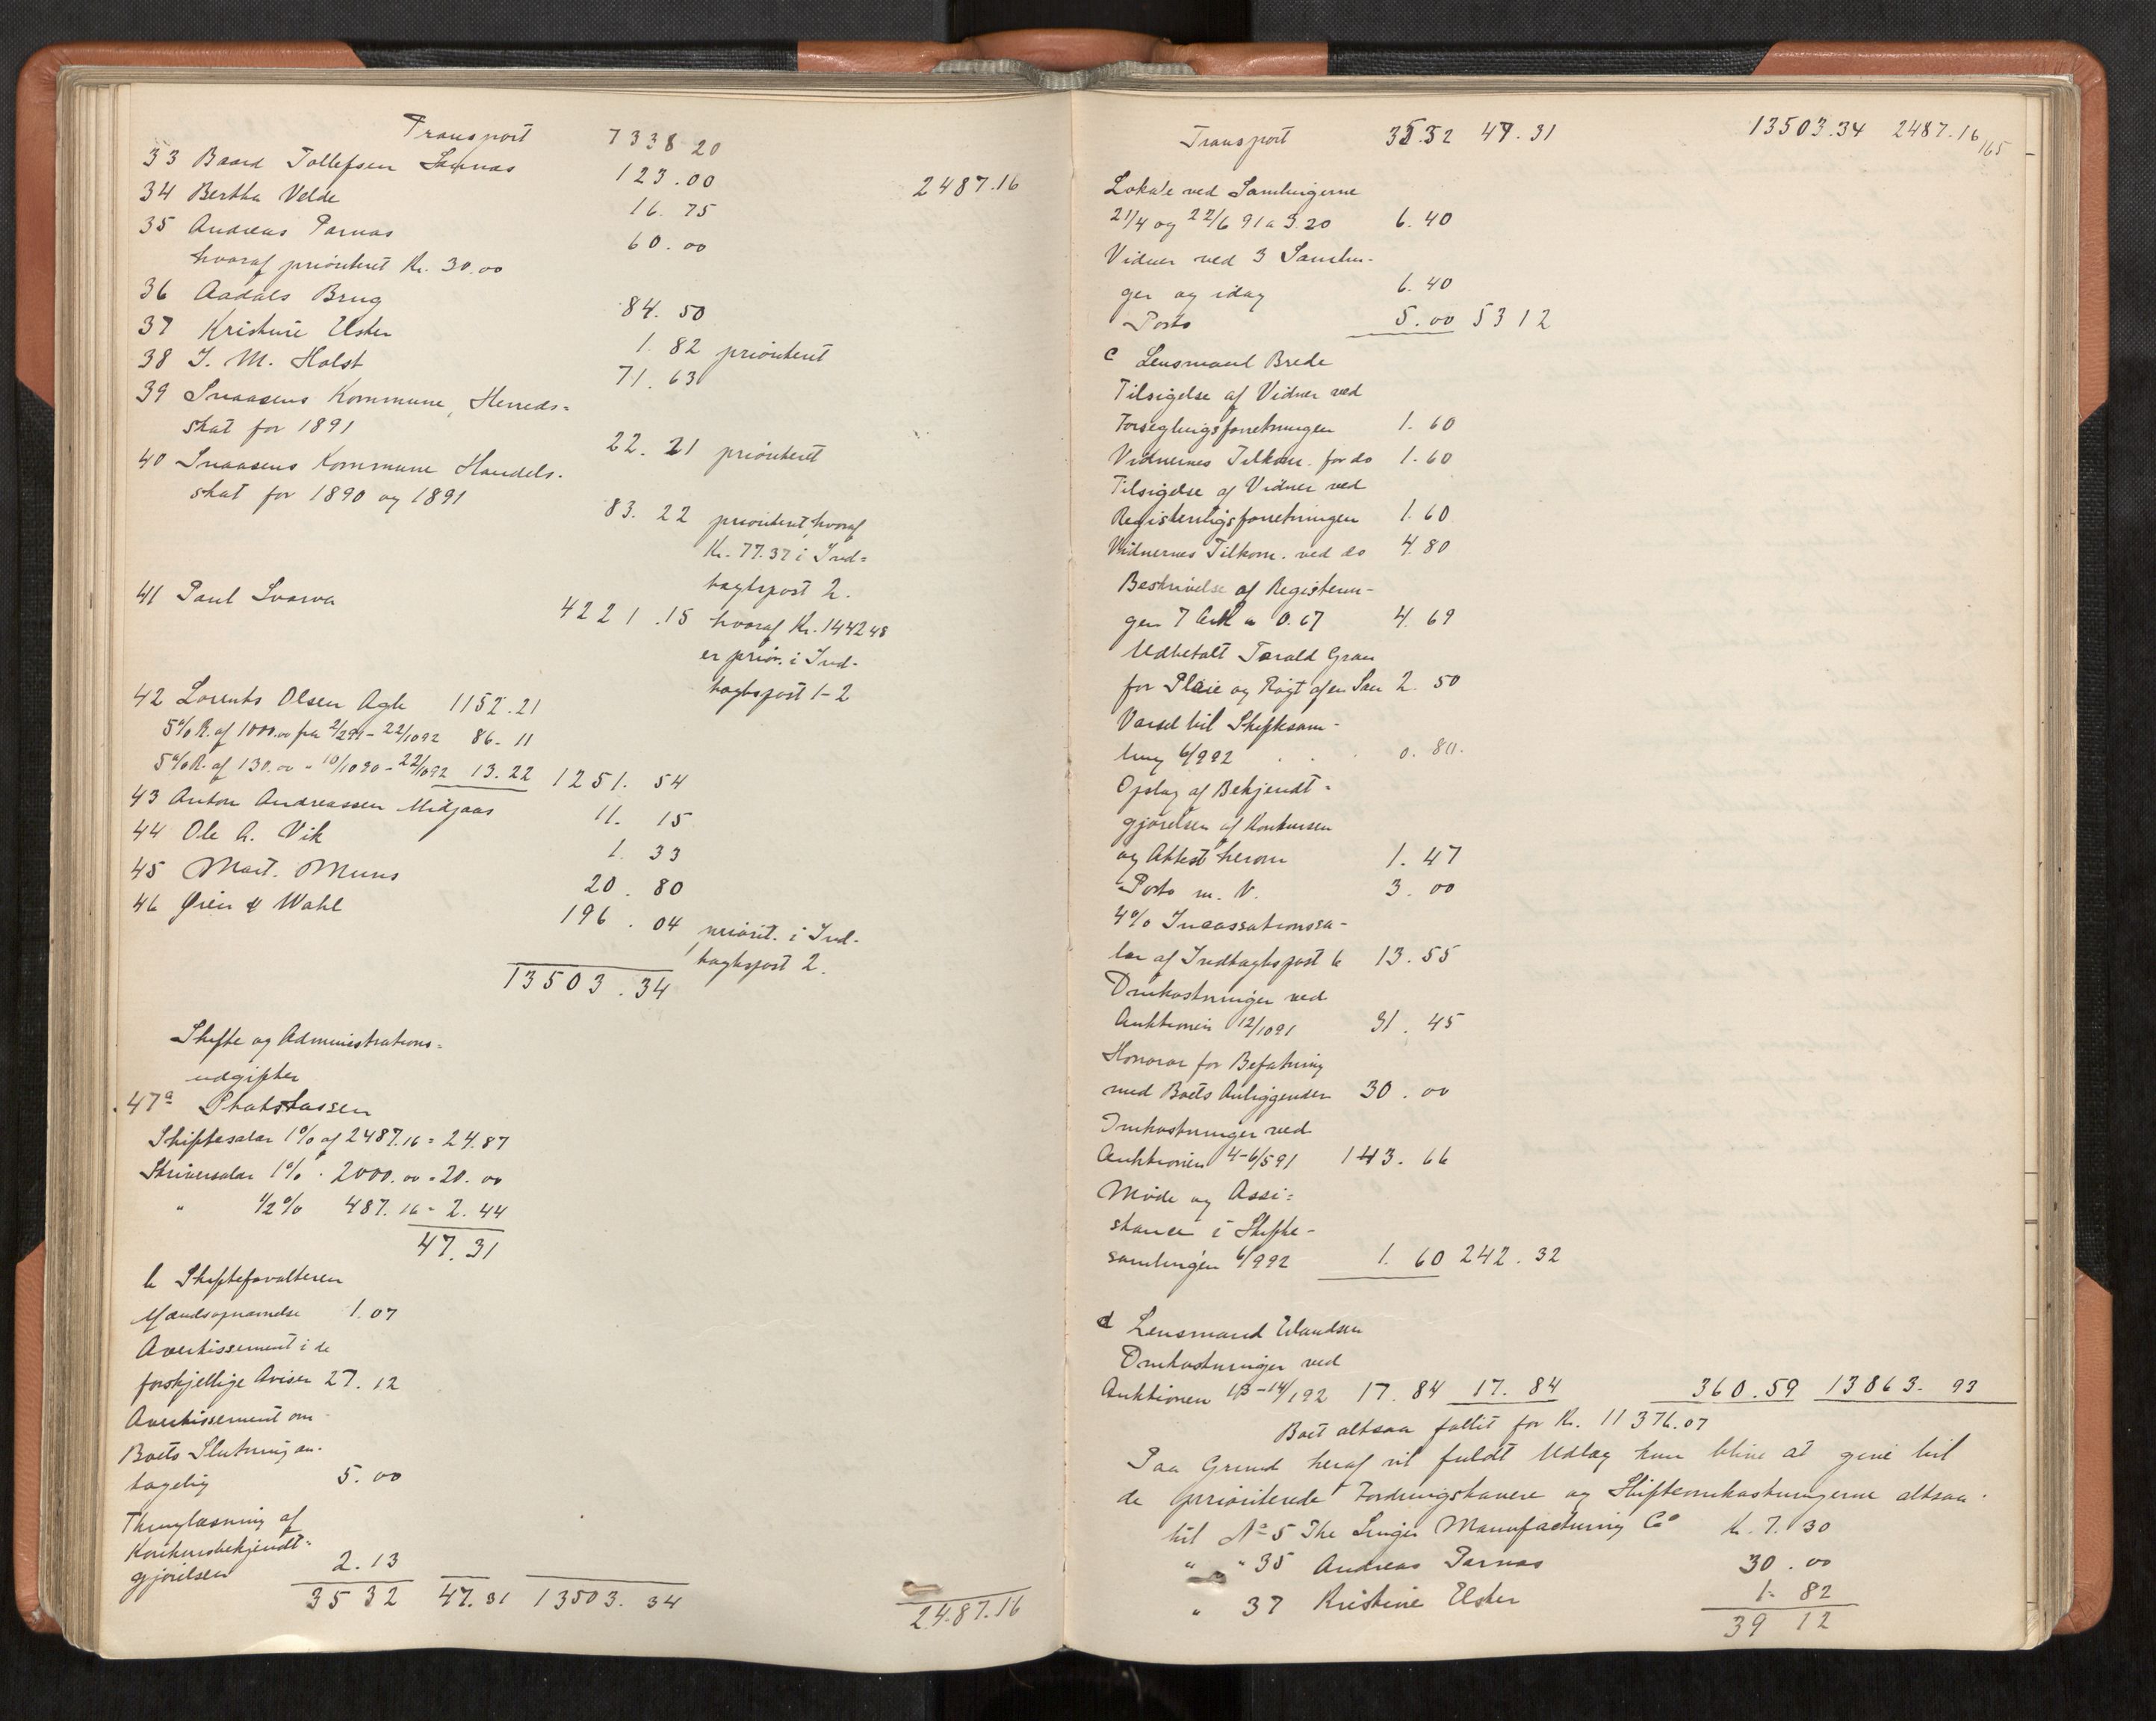 Transport 7338 20
33 Baard Tollefsen Sannas 123.00 2487.16
34 Bertha Velde 16.75
35 Andreas Parnas 60.00
hvoraf prioriteret Kr. 30.00
36 Aadals Brug 84.50
37 Kristine Elster 1.82 prioriteret
38 I. M. Holst 71.63
39 Snaasens Kommune, Herreds=
skat for 1891 22.21 prioriteret
40 Snaasens Kommune Handels-
skat for 1890 og 1891 83.22 prioriteret hvoraf
Kr. 77.37 i Ind=
tægtspost 2.
41 Paul Svarva 4221.15 hvoraf Kr. 1442 48
er prior. i Ind-
tægtspost 1-2
42 Lorents Olsen Agle 1152.21
5% R. af 1000.00 fra 2/291 - 22/1092 86-11
5% R. af 130.00 - 10/1090 - 22/1092 13.22 1251.54
43 Anton Andreassen Midjaas 11.15
44 Ole A. Vik 1.33
45 Mart. Muus 20.80
46 Øien & Wahl 196.04 priorit. i Ind-
tægtspost 2.
13503.34
Skifte og Administrations=
udgifter
47a Statskassen
Skiftesalær 1% af 2487.16 = 24.87
Skriversalær 1% - 2000.00 = 20.00
" 1/2% 487.16 - 2.44
47.31
b Skifteforvalteren
Mandsopnævnelse 1.07
Avertissement i de
forskjellige Aviser 27.12
Avertissement om
Boets Slutning an-
tagelig 5.00
Thinglæsning af
Konkursbekjendt=
gjørelsen 2.13
35 32 47.31 13503.34 2487.16
Transport 35.32 47.31 13503.34 2487.16
165
Lokale ved Samlingerne
21/4 og 22/6 91 a 3.20 6.40
Vidner ved 3 Samlin-
ger og idag 6.40
Porto 5.00 53 12
c Lensmand Brede
Tilsigelse af Vidner ved
Forseglingsforretningen 1.60
Vidnernes Tilkom. for do 1.60
Tilsigelse af Vidner ved
Registreringsforretningen 1.60
Vidnernes Tilkom. ved do 4.80
Beskrivelse af Registrerin-
gen 7 Ark a 0.67 4.69
Udbetalt Torald Gran
for Pleie og Røgt af en 2.50
Varsel til Skiftesam-
ling 6/992 0.80.
Opslag af Bekjendt-
gjørelsen af Konkursen
og Attest herom 1.47
Porto m. V. 3.00
4% Incassationssa-
lær af Indtægtspost 6 13.55
Omkostninger ved
Auktionen 12/1091 31.45
Honorar for Befatning
med Boets Anliggender 30.00
Omkostninger ved
Auktionen 4-6/591 143.66
Møde og Assi=
stance i Skifte-
samlingen 6/992 1.60 242.32
d Lensmand Elandsen
Omkostninger ved
Auktionen 13-14/192 17.84 17.84 360.59 13863.93
Boet altsaa fallit for Kr. 11376.07
Paa Grund heraf vil fuldt Udlæg kun blive at give til
de prioriterede Fordringshavere og Skifteomkostningerne altsaa.
til No 5 The Singer Manufacturing Co Kr. 7.30
" " 35 Andreas Parnas 30.00
" 37 Kristine Elster 1.82
39 12